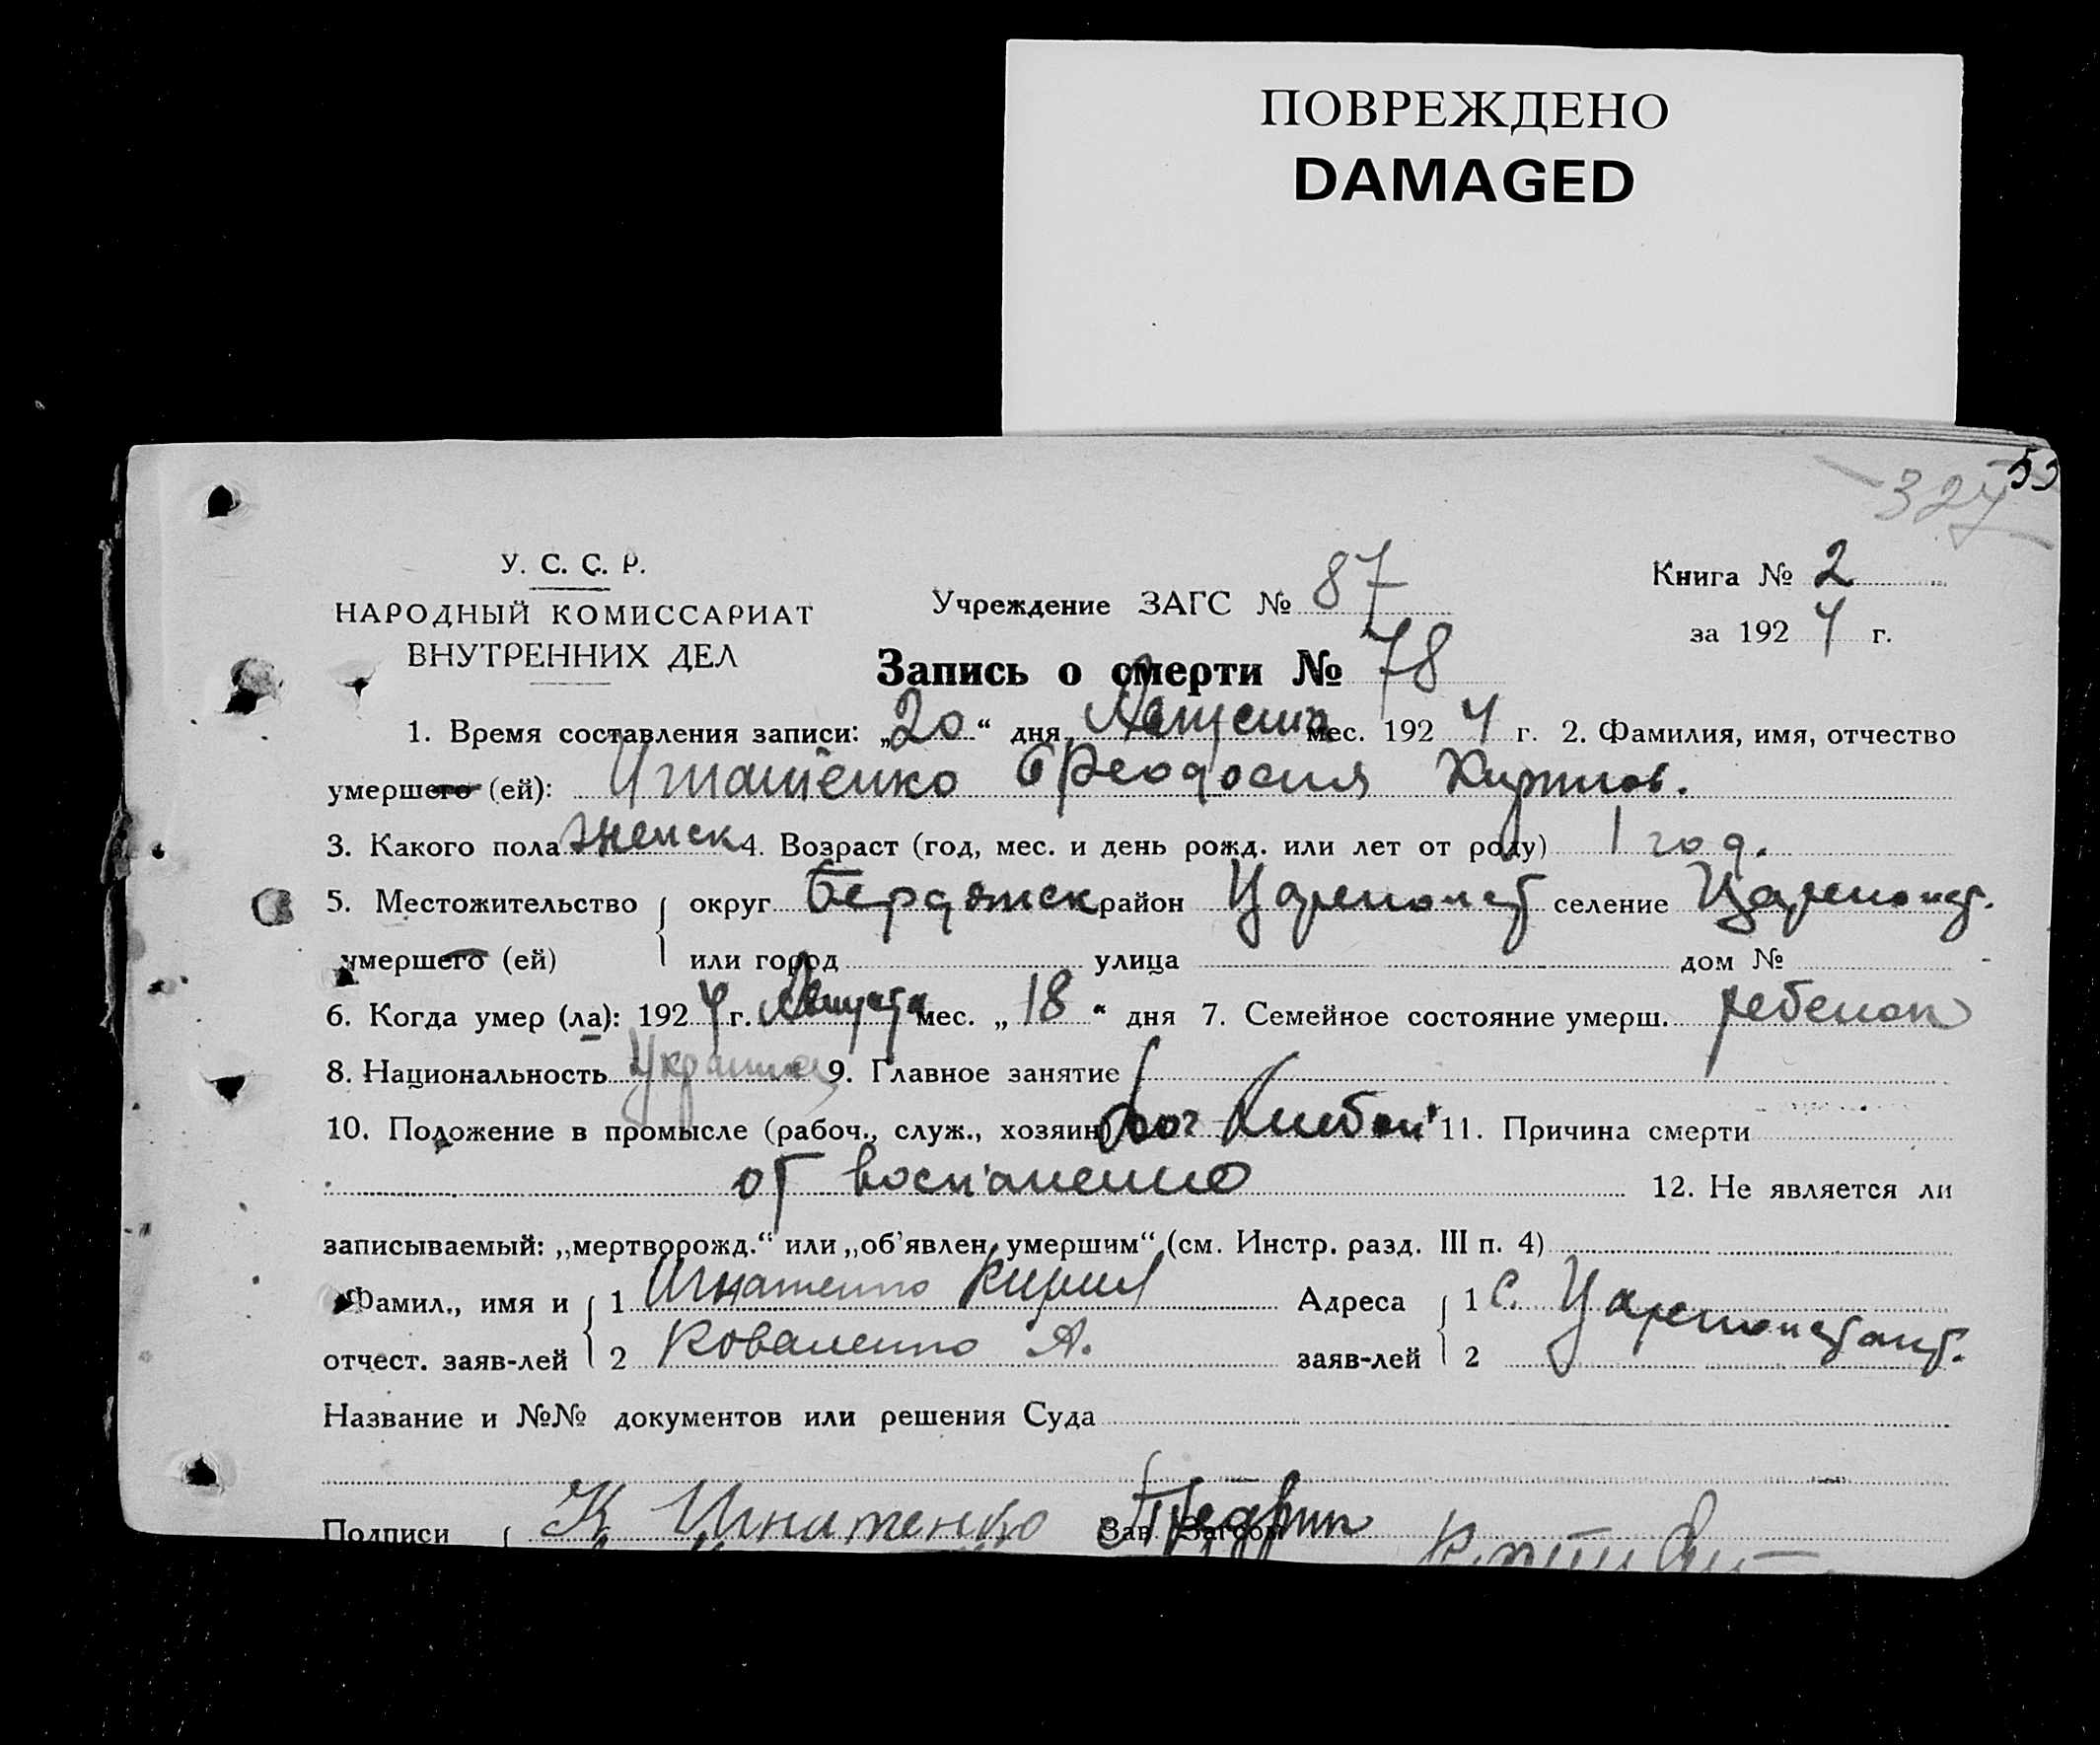 ПОВРЕЖДЕНО
DAMAGED
327
У. С. С. Р.
НАРОДНЫЙ КОМИССАРИАТ
ВНУТРЕННИХ ДЕЛ
Учреждение ЗАГС № 87
Книга № 2
за 1924 г.
Запись о смерти № 78
1. Время составления записи: „20“ дня Августа мес. 1924 г. 2. Фамилия, имя, отчество
умершего (ей): Игнатенко Феодосия Кирилов.
3. Какого пола женск 4. Возраст (год, мес. и день рожд. или лет от роду) 1 год.
5. Местожительство округ Бердянск район Цареконст селение Цареконст.
умершего (ей) или город улица дом №
6. Когда умер (ла): 1924 г. Августа мес. „18“ дня 7. Семейное состояние умерш. ребенок
8. Национальность Украинка 9. Главное занятие
10. Положение в промысле (рабоч., служ., хозяин) 11. Причина смерти
от воспаление
12. Не является ли
записываемый: „мертворожд.“ или „об’явлен. умершим“ (см. Инстр. разд. III п. 4)
Фамил., имя и 1 Игнатенко Кирил Адреса 1 с. Цареконстант.
отчест. заяв-лей 2 Коваленко А. заяв-лей 2
Название и №№ документов или решения Суда
Подписи К Игнатенко Зав. Загсом